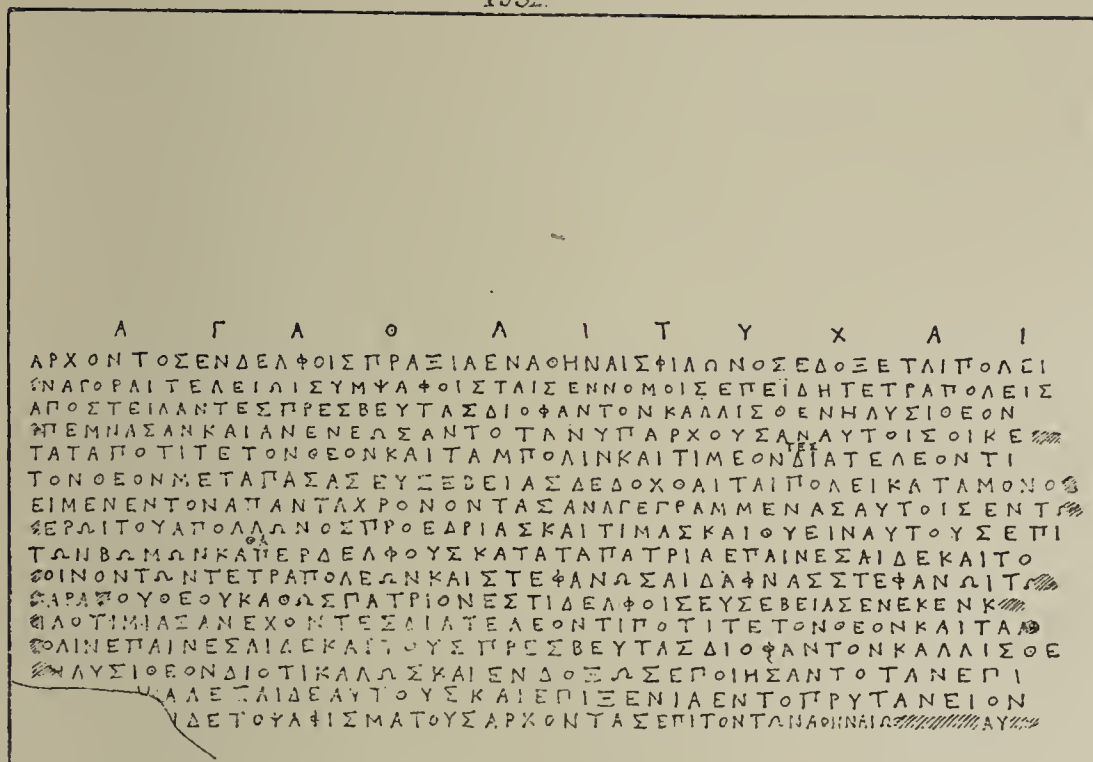 Α Γ Α Θ Α Ι Τ Υ Χ Α Ι
ΑΡΧΟΝΤΟΣΕΝΔΕΛΦΟΙΣΠΡΑΞΙΑΕΝΑΘΗΝΑΙΣΦΙΛΩΝΟΣΕΔΟΞΕΤΑΙΠΟΛΕΙ
ΕΝΑΓΟΡΑΙΤΕΛΕΙΩΙΣΥΜΨΑΦΟΙΣΤΑΙΣΕΝΝΟΜΟΙΣΕΠΕΪΔΗΤΕΤΡΑΠΟΛΕΙΣ
ΑΠΟΣΤΕΙΛΑΝΤΕΣΠΡΕΣΒΕΥΤΑΣΔΙΟΦΑΝΤΟΝΚΑΛΛΙΣΘΕΝΗΛΥΣΙΘΕΟΝ
ΑΠΕΜΝΑΣΑΝΚΑΙΑΝΕΝΕΩΣΑΝΤΟΤΑΝΥΠΑΡΧΟΥΣΑΝΑΥΤΟΙΣΟΙΚΕ
ΤΕΣ
ΤΑΤΑΠΟΤΙΤΕΤΟΝΘΕΟΝΚΑΙΤΑΜΠΟΛΙΝΚΑΙΤΙΜΕΟΝΔΙΑΤΕΛΕΟΝΤΙ
ΤΟΝΘΕΟΝΜΕΤΑΠΑΣΑΣΕΥΣΕΒΕΙΑΣΔΕΔΟΧΘΑΙΤΑΙΠΟΛΕΙΚΑΤΑΜΟΝΟΣ
ΕΙΜΕΝΕΝΤΟΝΑΠΑΝΤΑΧΡΟΝΟΝΤΑΣΑΝΑΓΕΓΡΑΜΜΕΝΑΣΑΥΤΟΙΣΕΝΤ
ΙΕΡΩΙΤΟΥΑΠΟΛΛΩΝΟΣΠΡΟΕΔΡΙΑΣΚΑΙΤΙΜΑΣΚΑΙΘΥΕΙΝΑΥΤΟΥΣΕΠΙ
ΘΑ
ΤΩΝΒΩΜΩΝΚΑΠΕΡΔΕΛΦΟΥΣΚΑΤΑΤΑΠΑΤΡΙΑΕΠΑΙΝΕΣΑΙΔΕΚΑΙΤΟ
ΚΟΙΝΟΝΤΩΝΤΕΤΡΑΠΟΛΕΩΝΚΑΙΣΤΕΦΑΝΩΣΑΙΔΑΦΝΑΣΣΤΕΦΑΝΩΙΤ
ΠΑΡΑΠΟΥΘΕΟΥΚΑΘΩΣΠΑΤΡΙΟΝΕΣΤΙΔΕΛΦΟΙΣΕΥΣΕΒΕΙΑΣΕΝΕΚΕΝΚ
ΦΙΛΟΤΙΜΙΑΣΑΝΕΧΟΝΤΕΣΔΙΑΤΕΛΕΟΝΤΙΠΟΤΙΤΕΤΟΝΘΕΟΝΚΑΙΤΑΑ
ΠΟΛΙΝΕΠΑΙΝΕΣΑΙΔΕΚΑΙΤΟΥΣΠΡΕΣΒΕΥΤΑΣΔΙΟΦΑΝΤΟΝΚΑΛΛΙΣΘΕ
ΝΗΛΥΣΙΘΕΟΝΔΙΟΤΙΚΑΛΩΣΚΑΙΕΝΔΟΞΩΣΕΠΟΙΗΣΑΝΤΟΤΑΝΕΠΙ
ΚΑΛΕΣΑΙΔΕΑΥΤΟΥΣΚΑΙΕΠΙΞΕΝΙΑΕΝΤΟΠΡΥΤΑΝΕΙΟΝ
ΙΔΕΤΟΥΑΦΙΣΜΑΤΟΥΣΑΡΧΟΝΤΑΣΕΠΙΤΟΝΤΩΝΑΘΗΝΑΙΩ ΑΥ